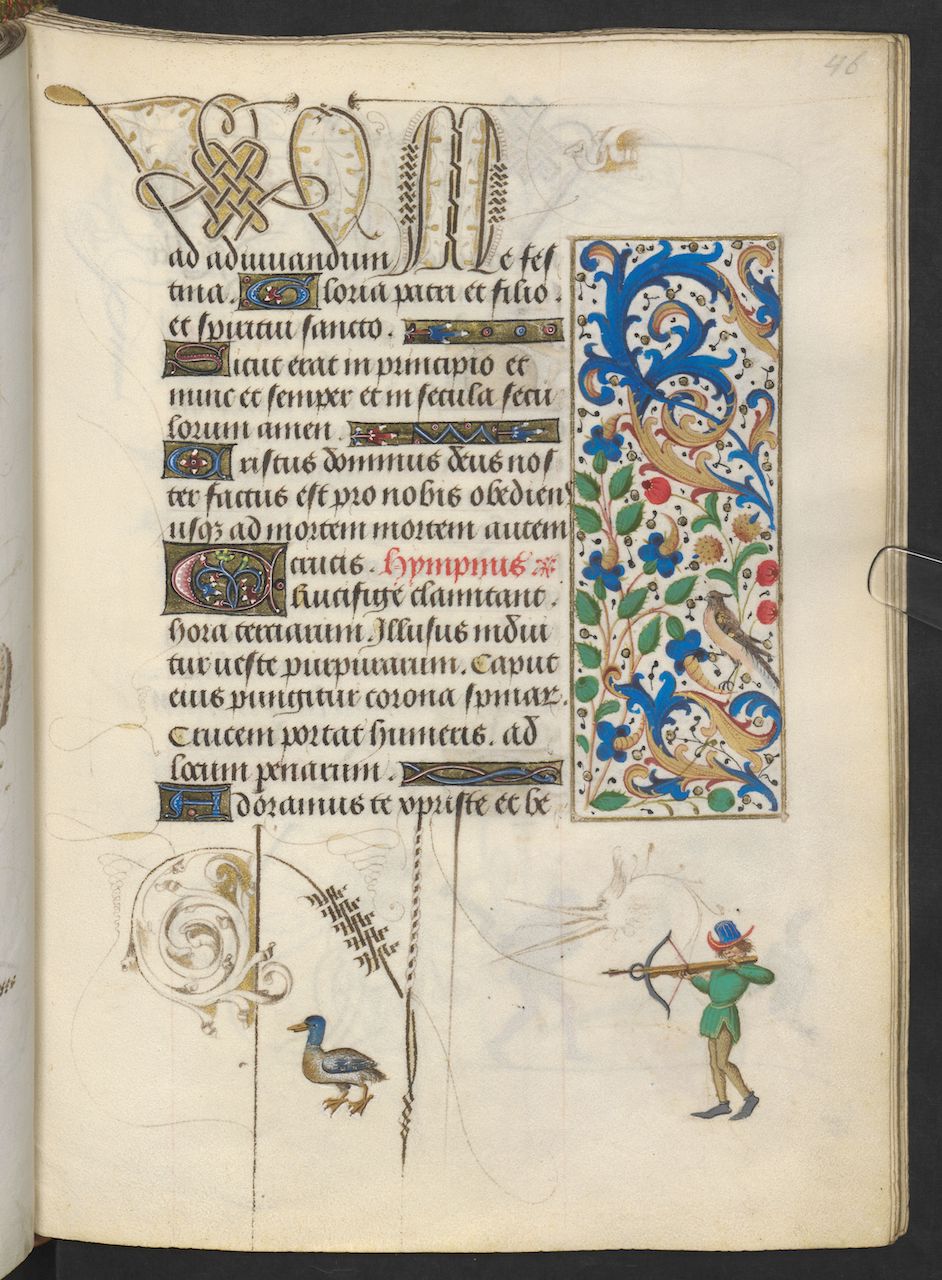 46
ad adiuuandum Me fes
tina. Gloria patri et filio.
et spiritui sancto.
Sicut erat in principio et
nunc et semper et in secula secu
lorum amen.
Cristus dominus deus nos
ter factus est pro nobis obedien
usqȝ ad mortem mortem autem
crucis. Hympnus
Crucifige clamitant.
hora terciarum. Illusus indui
tur ueste purpurarum. Caput
eius pungitur corona spinaꝝ.
Crucem portat humeris. ad
locum penarum.
Adoramus te xpriste et be